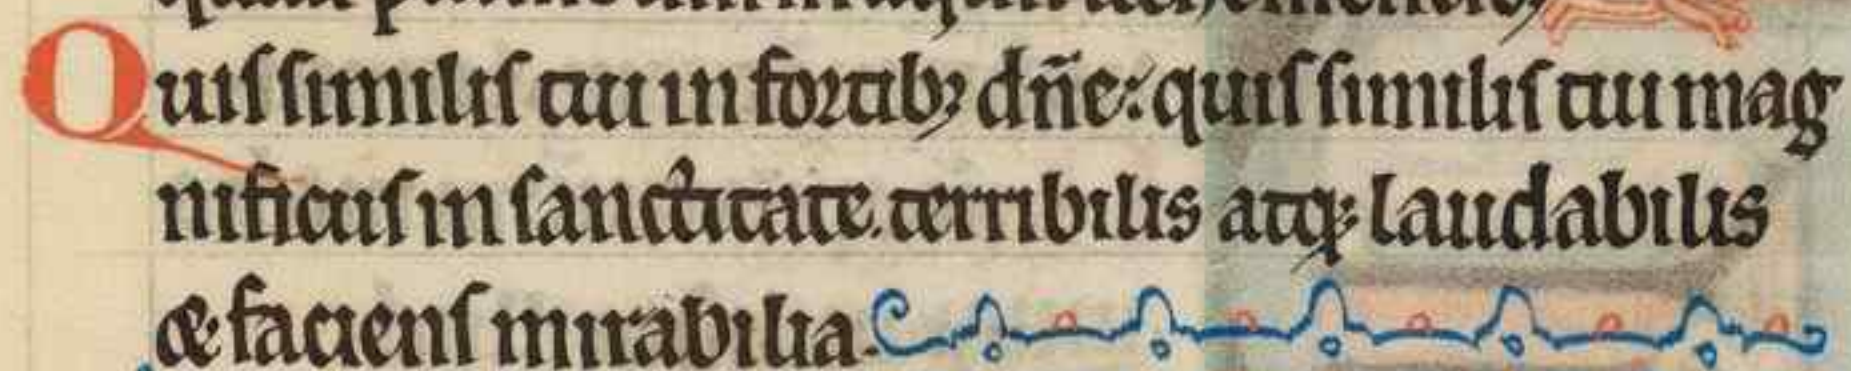 Quiſ ſimiliſ tui in fortibꝫ dn̄e: quiſ ſimiliſ tui mag
nificuſ in ſanctitate. terribilis atqꝫ laudabilis
& facienſ mirabilia.